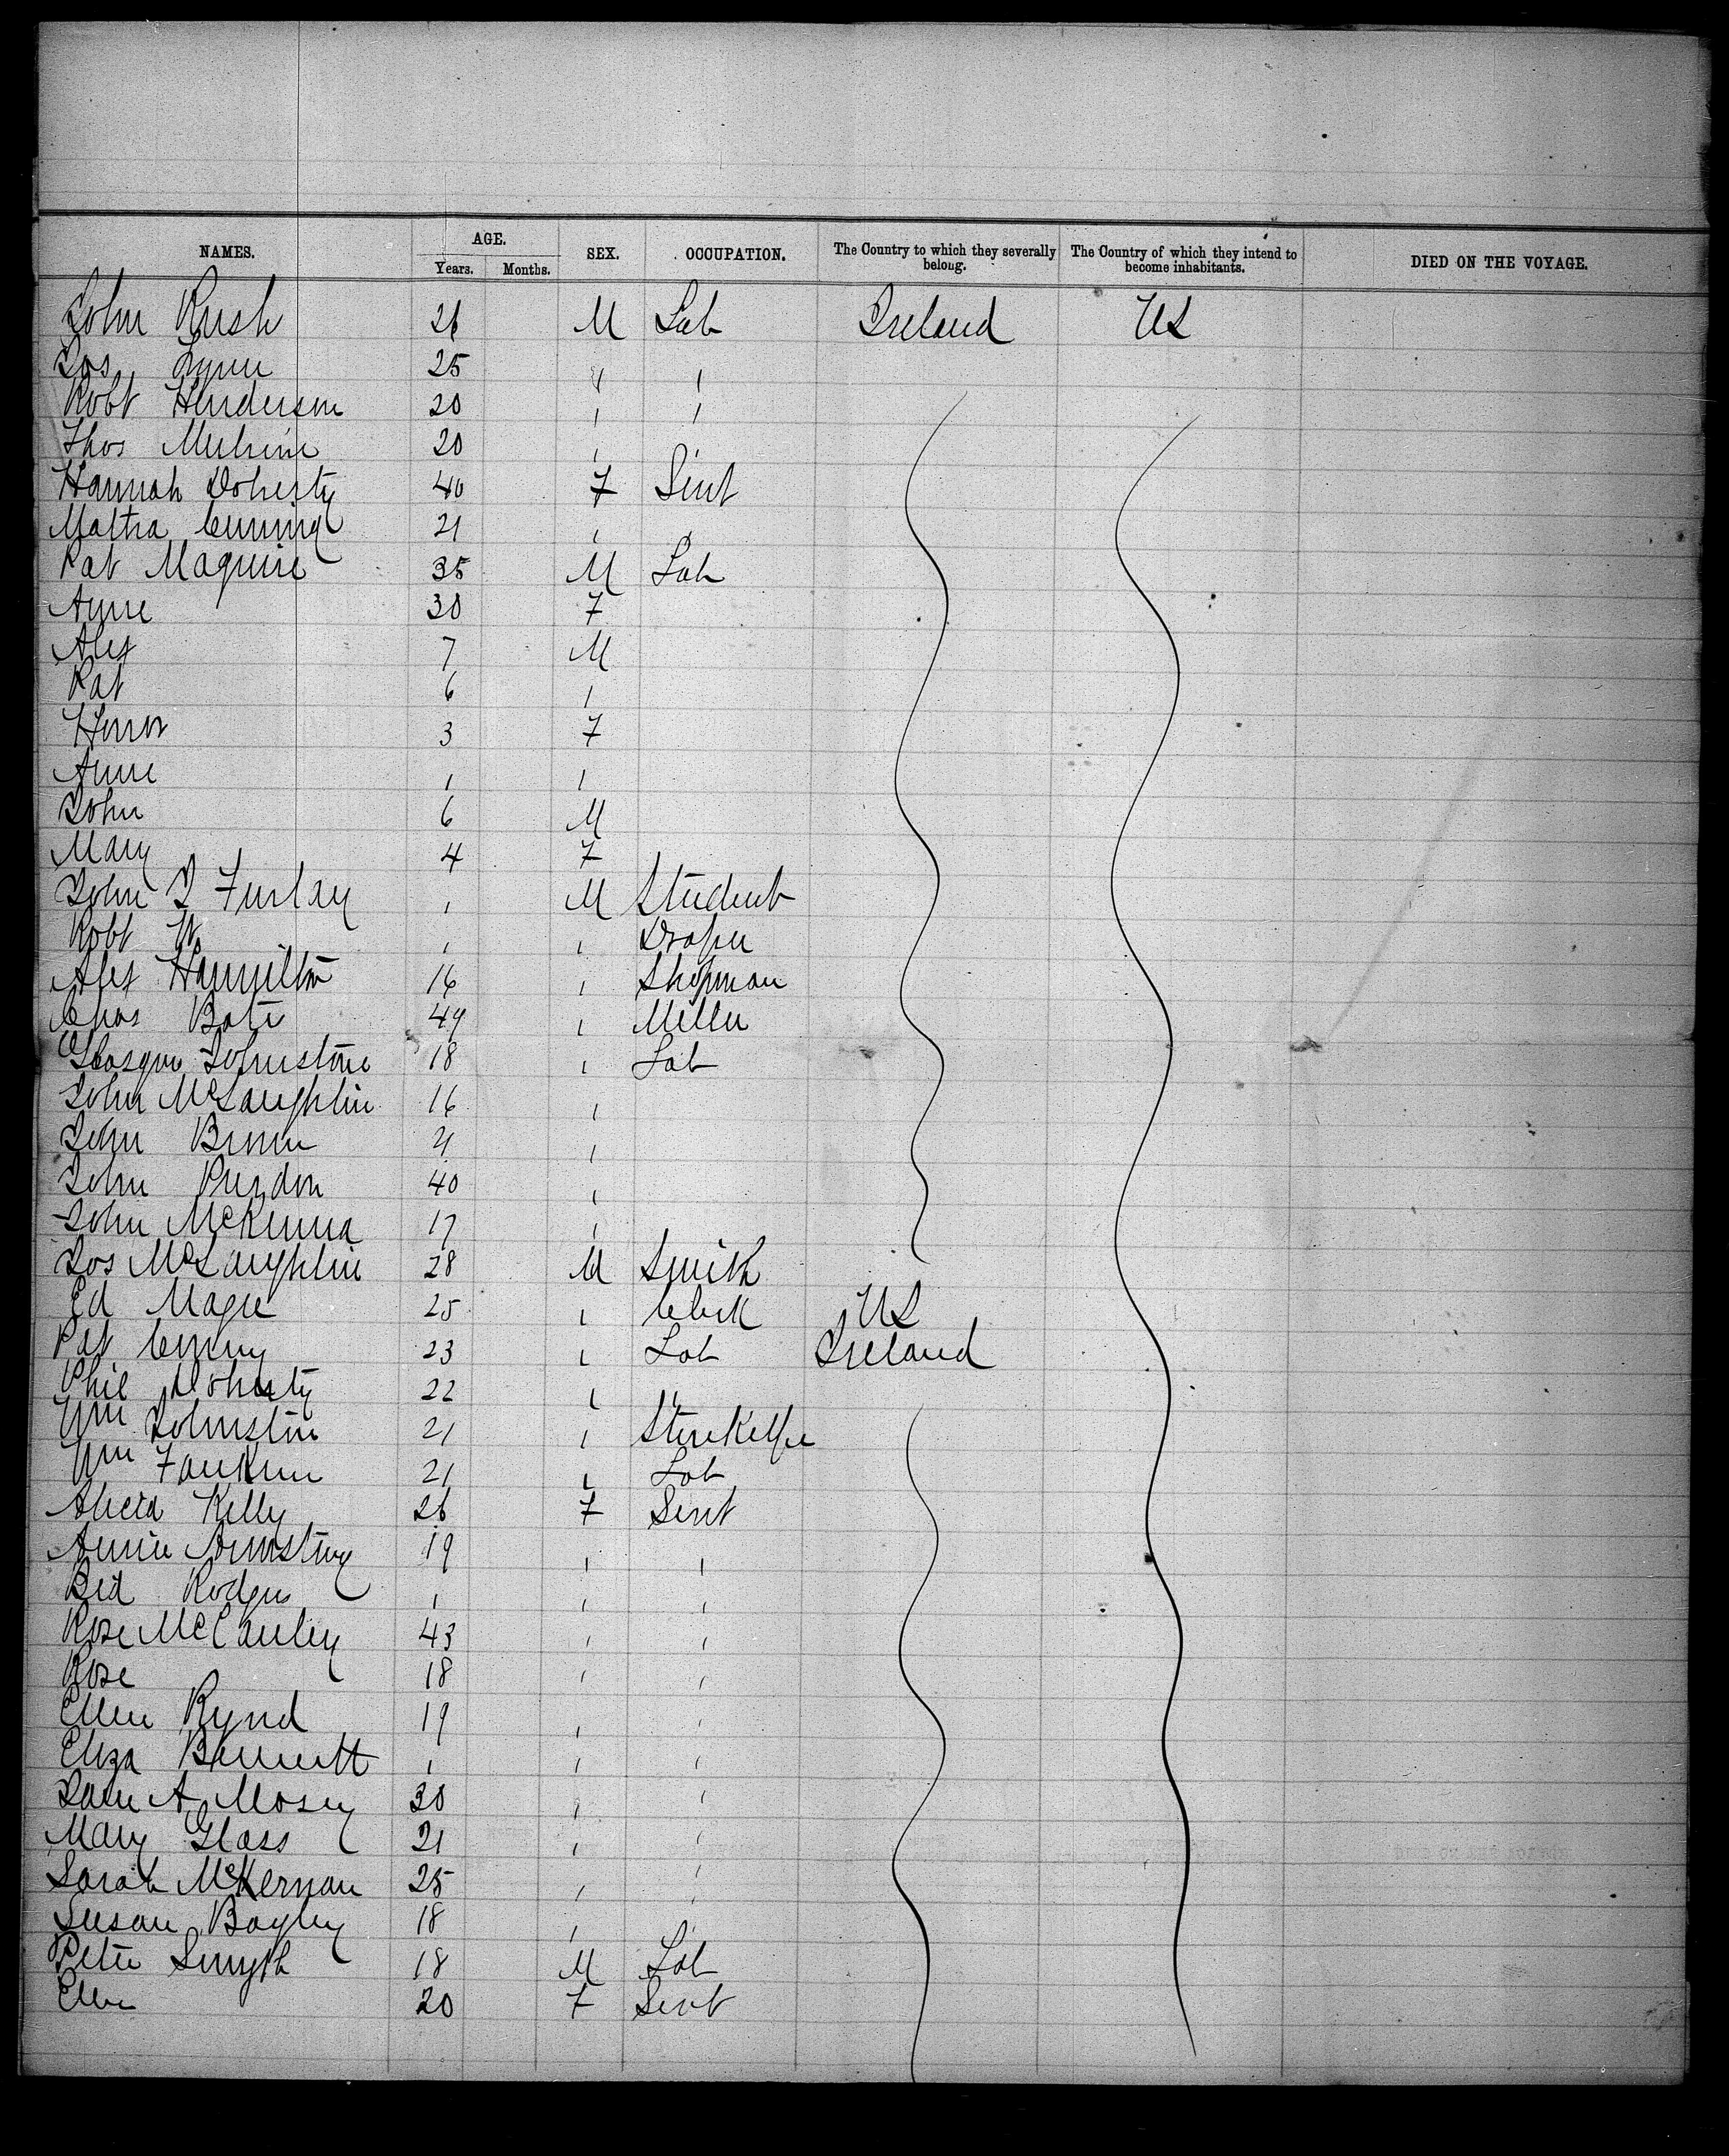 NAMES. AGE. Years. Months. SEX. OCCUPATION. The Country to which they severally belong. The Country of which they intend to become inhabitants. DIED ON THE VOYAGE.
John Rush 26 M Lab Ireland US
Jos Lynn 25 " "
Robt Henderson 20 " "
Thos 20 " "
Hannah Doherty 40 F Servt
21 "
Pat Maguire 35 M Lab
Anne 30 F
Alex 7 M
Pat 6 "
3 F
Anne 1 "
John 6 M
Mary 4 F
John J " M Student
Robt W " " Draper
Alex Hamilton 16 " Shopman
Chas 49 " Miller
Glasgow Johnstone 18 " Lab
John McLaughlin 16 "
John 21 "
John Purdon 40 "
John McKenna 17 "
Jos McLaughlin 28 M Smith
Ed Magee 25 " Clerk US
Pat 23 " Lab Ireland
Phil Doherty 22 " "
Wm Johnston 21 "
Wm 21 " Lab
Alicia Kelly 26 F Servt
Annie Armstrong 19 " "
Bid Rodgers " " "
Rose McCauley 43 " "
Rose 18 " "
Ellen Rynd 19 " "
Eliza Bennett " " "
Jane A 30 " "
Mary Glass 21 " "
Sarah McKernan 25 " "
Susan Bagley 18 " "
Peter Smyth 18 M Lab
Ellen 20 F Servt